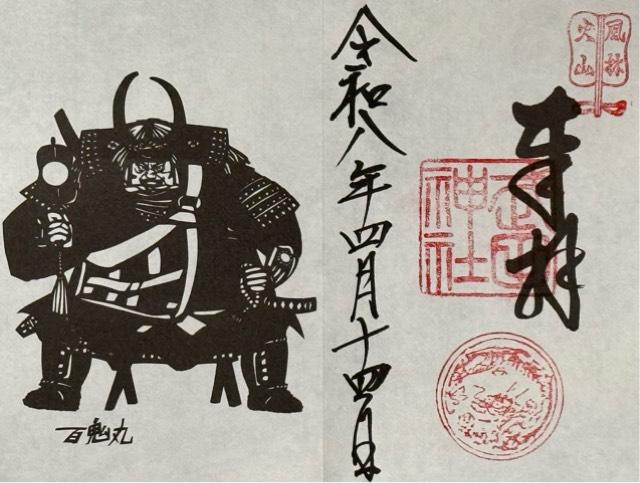 風林
火山
奉拝
武田
神社
令和八年四月十四日
百鬼丸